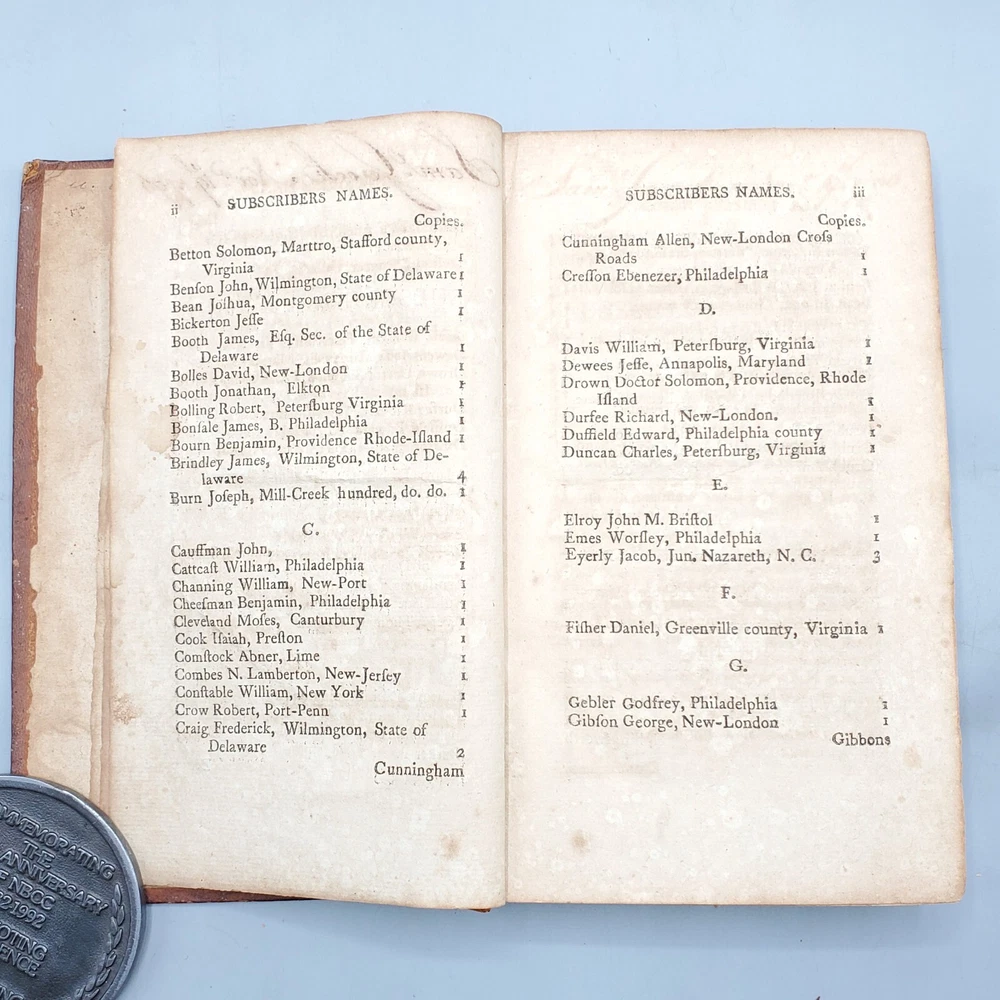 ii SUBSCRIBERS NAMES.
Copies.
Betton Solomon, Marttro, Stafford county,
Virginia 1
Benſon John, Wilmington, State of Delaware 1
Bean Joſhua, Montgomery county 1
Bickerton Jeſſe 1
Booth James, Eſq. Sec. of the State of
Delaware 1
Bolles David, New-London 1
Booth Jonathan, Elkton 1
Bolling Robert, Peterſburg Virginia 1
Bonſale James, B. Philadelphia 1
Bourn Benjamin, Providence Rhode-Iſland 1
Brindley James, Wilmington, State of De-
laware 4
Burn Joſeph, Mill-Creek hundred, do. do. 1
C.
Cauffman John, 1
Cattcaſt William, Philadelphia 1
Channing William, New-Port 1
Cheeſman Benjamin, Philadelphia 1
Cleveland Moſes, Canturbury 1
Cook Iſaiah, Preſton 1
Comſtock Abner, Lime 1
Combes N. Lamberton, New-Jerſey 1
Conſtable William, New York 1
Crow Robert, Port-Penn 1
Craig Frederick, Wilmington, State of
Delaware 2
Cunningham
SUBSCRIBERS NAMES. iii
Copies.
Cunningham Allen, New-London Croſs
Roads 1
Creſſon Ebenezer, Philadelphia 1
D.
Davis William, Peterſburg, Virginia 1
Dewees Jeſſe, Annapolis, Maryland 1
Drown Doctor Solomon, Providence, Rhode
Iſland 1
Durfee Richard, New-London. 1
Duffield Edward, Philadelphia county 1
Duncan Charles, Peterſburg, Virginia 1
E.
Elroy John M. Briſtol 1
Emes Worſley, Philadelphia 1
Eyerly Jacob, Jun. Nazareth, N. C. 3
F.
Fiſher Daniel, Greenville county, Virginia 1
G.
Gebler Godfrey, Philadelphia 1
Gibſon George, New-London 1
Gibbons
MMEMORATING
THE
ANNIVERSARY
NBCC
1992